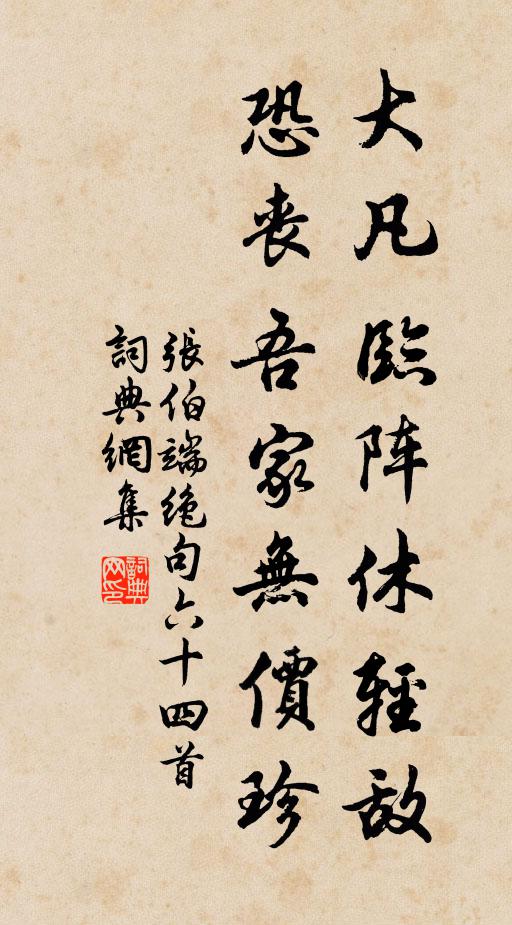 大凡臨阵休輕敌
恐丧吾家無價珍
張伯端絶句六十四首
詞典網集
詞典网印